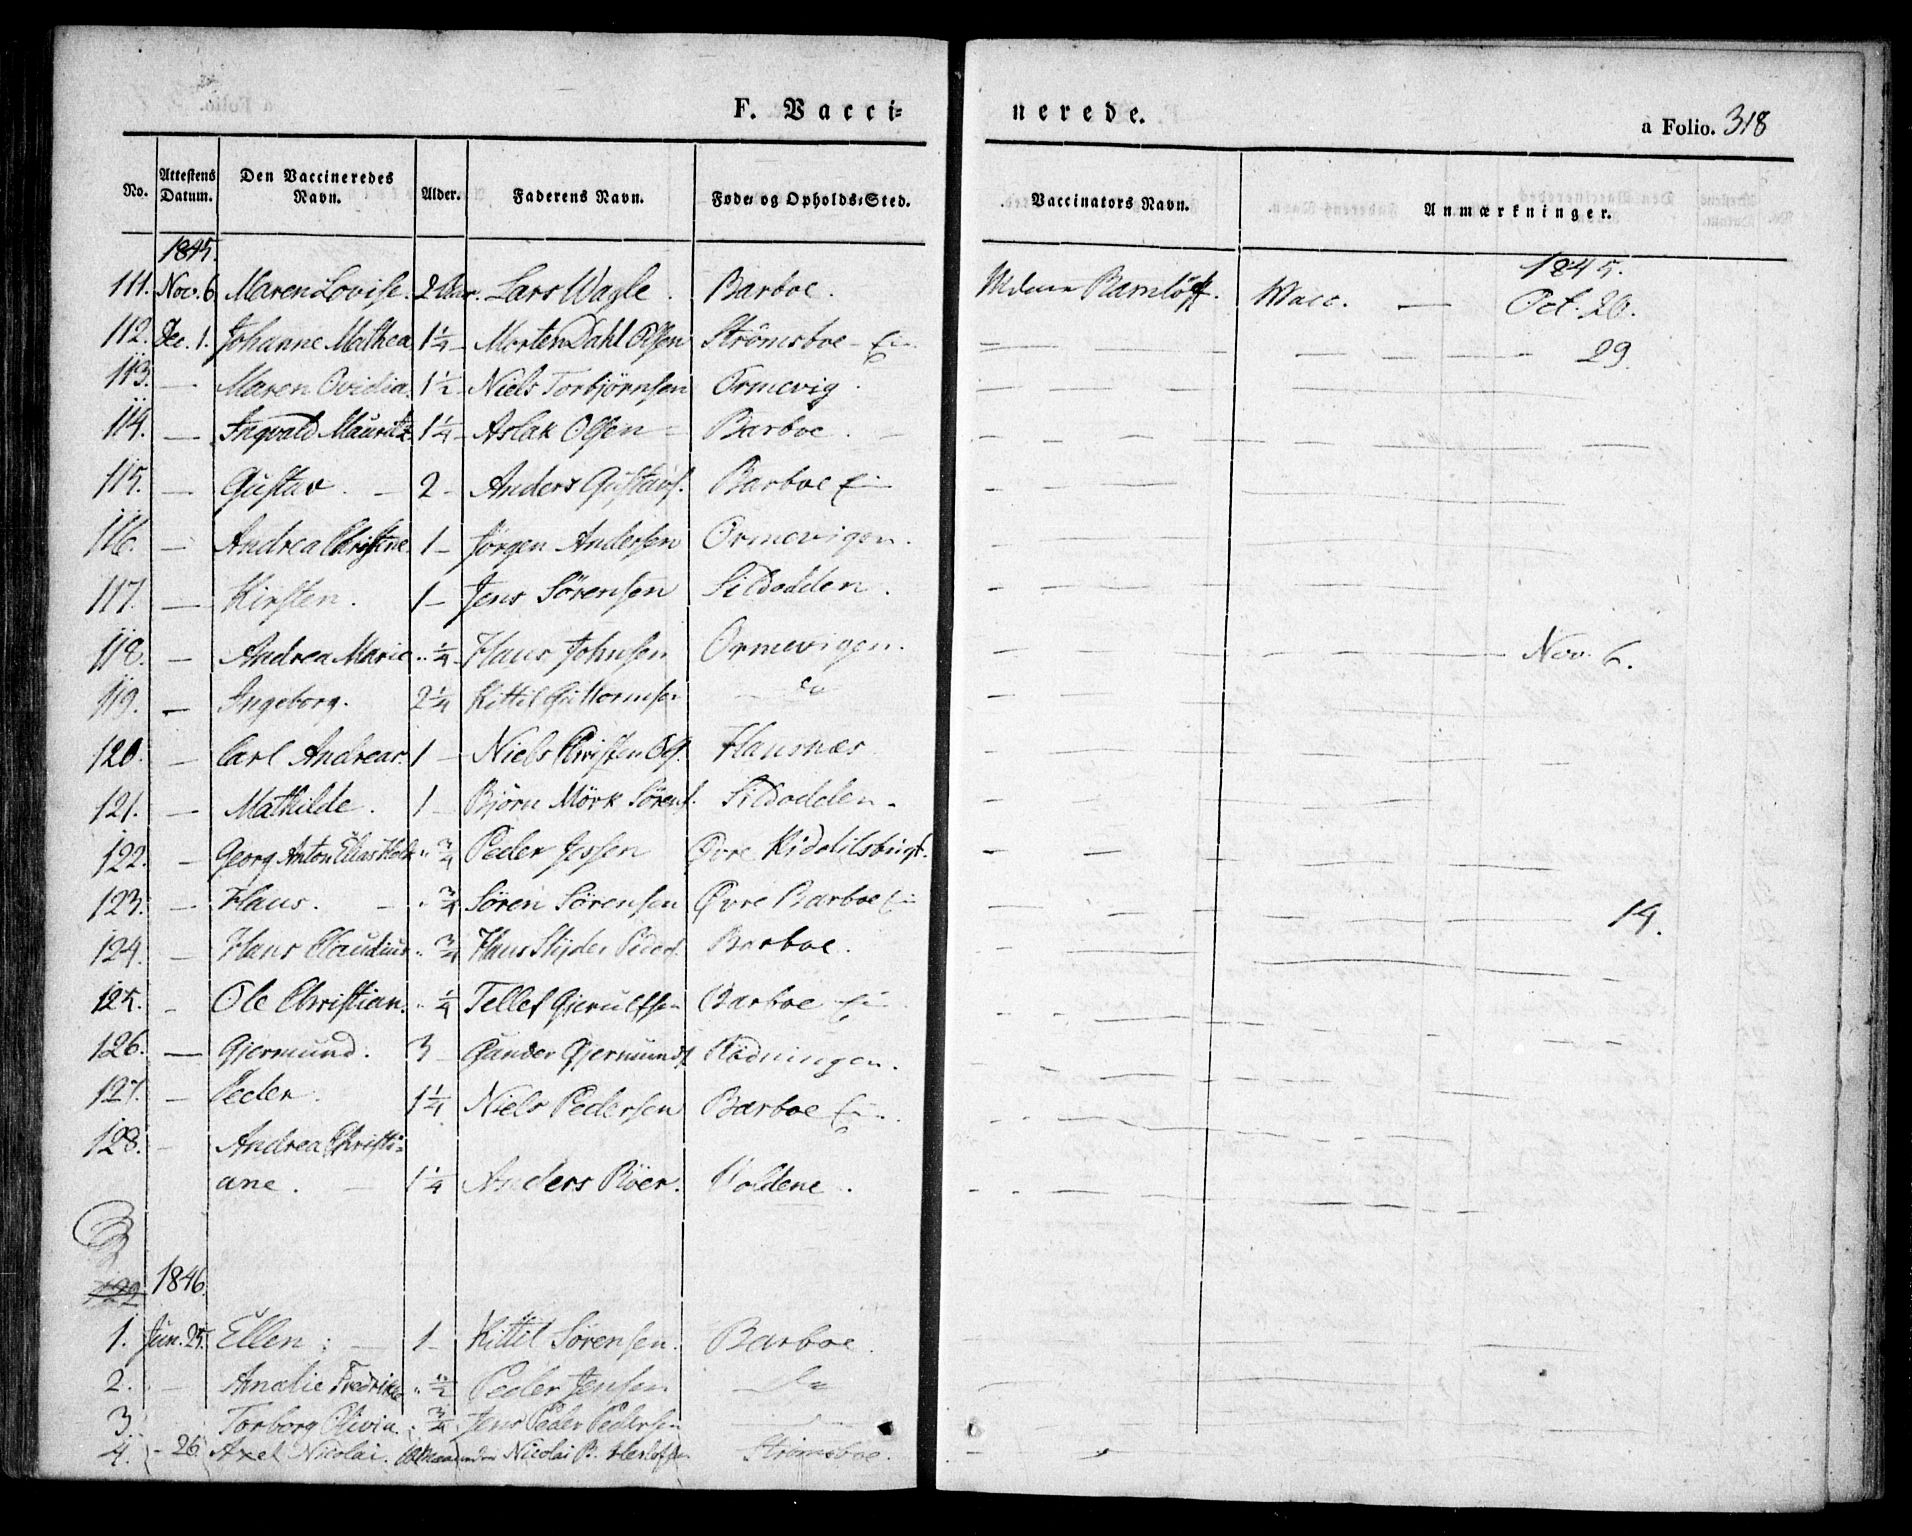 F. Vacci=
nerede.
a Folio. 318
No. Attestens Datum. Den Vaccineredes Navn. Alder. Faderens Navn. Føde= og Opholds=Sted. Vaccinators Navn. Anmærkninger.
1845. 1845.
111. Nov. 6 Maren Lovise. 2 Aar. Lars Wagle. Barboe. Vacc. — Oct. 26.
112. Dec. 1. Johanne Mathea 1¼ – Morten Dahl Olsen Strömsboe – — — 29.
113. — Maren Ovidia. 1½ – Niels Torbjørnsen Ormevig.
114. — Ingvald Mauritz 1¼ – Aslak Olsen – Barboe. –
115. — Gustav. – 2 – Anders Gustavs. Barboe
116. — Andrea Christine. 1 – Jørgen Andersen Ormevigen.
117. — Kirsten. 1 – Jens Sörensen Sildodden.
118. – Andrea Marie " ¼ – Hans Johnsen Ormevigen. Nov. 6.
119. – Ingeborg. 2¼ Kittil Guttormsen do
120. – Carl Andreas. 1 – Niels Christen Ols. Hausnæs
121. – Mathilde. 1 – Bjørn Mörk Sörens. Sildodden.
122. – Georg Anton Elias " ¾ Peder Jessen Øvre
123. – Hans. – " ¾ Sören Sörensen Øvre Barboe 14.
124. – Hans Claudius " ¾ Hans Barboe.
125. – Ole Christian. " ¼ Tellef Gjerulfsen Barboe
126. — Gjermund. 3 – Gunder Gjermunds. Rödningen.
127. – Peder. 1¼ Niels Pedersen Barboe
128. – Andrea Christi=
ane. — 1¼ Anders Röer. Holdene.
122 1846.
1. Jun. 25. Ellen; — 1 – Kittil Sörensen. Barboe.
2. – Amalie Fredrikke " ½ Peder Jensen do
3. Torborg Olivia. " ¾ Jens Peder Pedersen
4. – 26 Axel Nicolai. Nicolai P. Herlofsen Strömsboe.